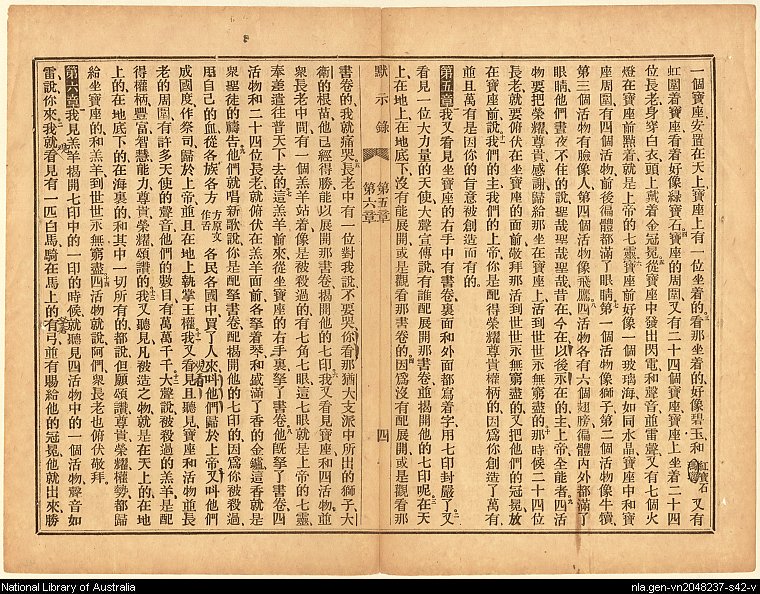 一個寶座、安置在天上、寶座上有一位坐着的、看那坐着的、好像碧玉、和紅寶石又有
虹圍着寶座、看着好像綠寶石、寶座的周圍、又有二十四個寶座、寶座上坐着二十四
位長老、身穿白衣、頭上戴着金冠冕、從寶座中發出閃電和聲音並雷聲、又有七個火
燈在寶座前點着、就是上帝的七靈、寶座前好像一個玻璃海、如同水晶、寶座中和寶
座周圍有四個活物、前後徧體都滿了眼睛、第一個活物像獅子、第二個活物像牛犢、
第三個活物有臉像人、第四個活物像飛鷹、四活物各有六個翅膀、徧體內外都滿了
眼睛、他們晝夜不住的說、聖哉聖哉聖哉、昔在今在以後永在的主上帝全能者、四活
物要把榮耀尊貴感謝歸給那坐在寶座上活到世世永無窮盡的、那時候二十四位
長老就要俯伏在坐寶座的面前、敬拜那活到世世永無窮盡的、又把他們的冠冕放
在寶座前說、我們的主我們的上帝、你是配得榮耀尊貴權柄的、因爲你創造了萬有、
並且萬有是因你的旨意被創造而有的、
第五章我又看見坐寶座的右手中有書卷、裏面和外面都寫着字、用七印封嚴了、又
看見一位大力量的天使大聲宣傳說、有誰配展開那書卷、並揭開他的七印呢、在天
上、在地上、在地底下、沒有能展開或是觀看那書卷的、因爲沒有配展開或是觀看那
默示錄 第五章 第六章 四
書卷的、我就痛哭、長老中有一位對我說、不要哭、你看那猶大支派中所出的獅子、大
衛的根苗、他已經得勝、能以展開那書卷、揭開他的七印、我又看見寶座和四活物、並
衆長老中間、有一個羔羊站着、像是被殺過的、有七角七眼、這七眼就是上帝的七靈、
奉差遣往普天下去的、這羔羊前來、從坐寶座的右手裏拏了書卷、他旣拏了書卷、四
活物和二十四位長老就俯伏在羔羊面前、各拏着琴、和盛滿了香的金鑪、這香就是
衆聖徒的禱告、他們就唱新歌說、你是配拏書卷、配揭開他的七印的、因爲你被殺過、
用自己的血從各族各方方原文作舌各民各國中、買了人來、叫他們歸於上帝、又叫他們
成國度、作祭司、歸於上帝、並且在地上就掌王權、我又看見且聽見寶座和活物並長
老的周圍、有許多天使的聲音、他們的數目有萬萬千千、大聲說、被殺過的羔羊、是配
得權柄豐富智慧能力尊貴榮耀頌讚的、我又聽見凡被造之物、就是在天上的、在地
上的、在地底下的、在海裏的、和其中一切所有的、都說、但願頌讚尊貴榮耀權勢、都歸
給坐寶座的和羔羊、到世世永無窮盡、四活物就說阿們、衆長老也俯伏敬拜、
第六章我見羔羊揭開七印中的一印的時候、就聽見四活物中的一個活物、聲音如
雷說、你來、我就看見有一匹白馬、騎在馬上的有弓、並有賜給他的冠冕、他就出來、勝
National Library of Australia
nla.gen-vn2048237-s42-v